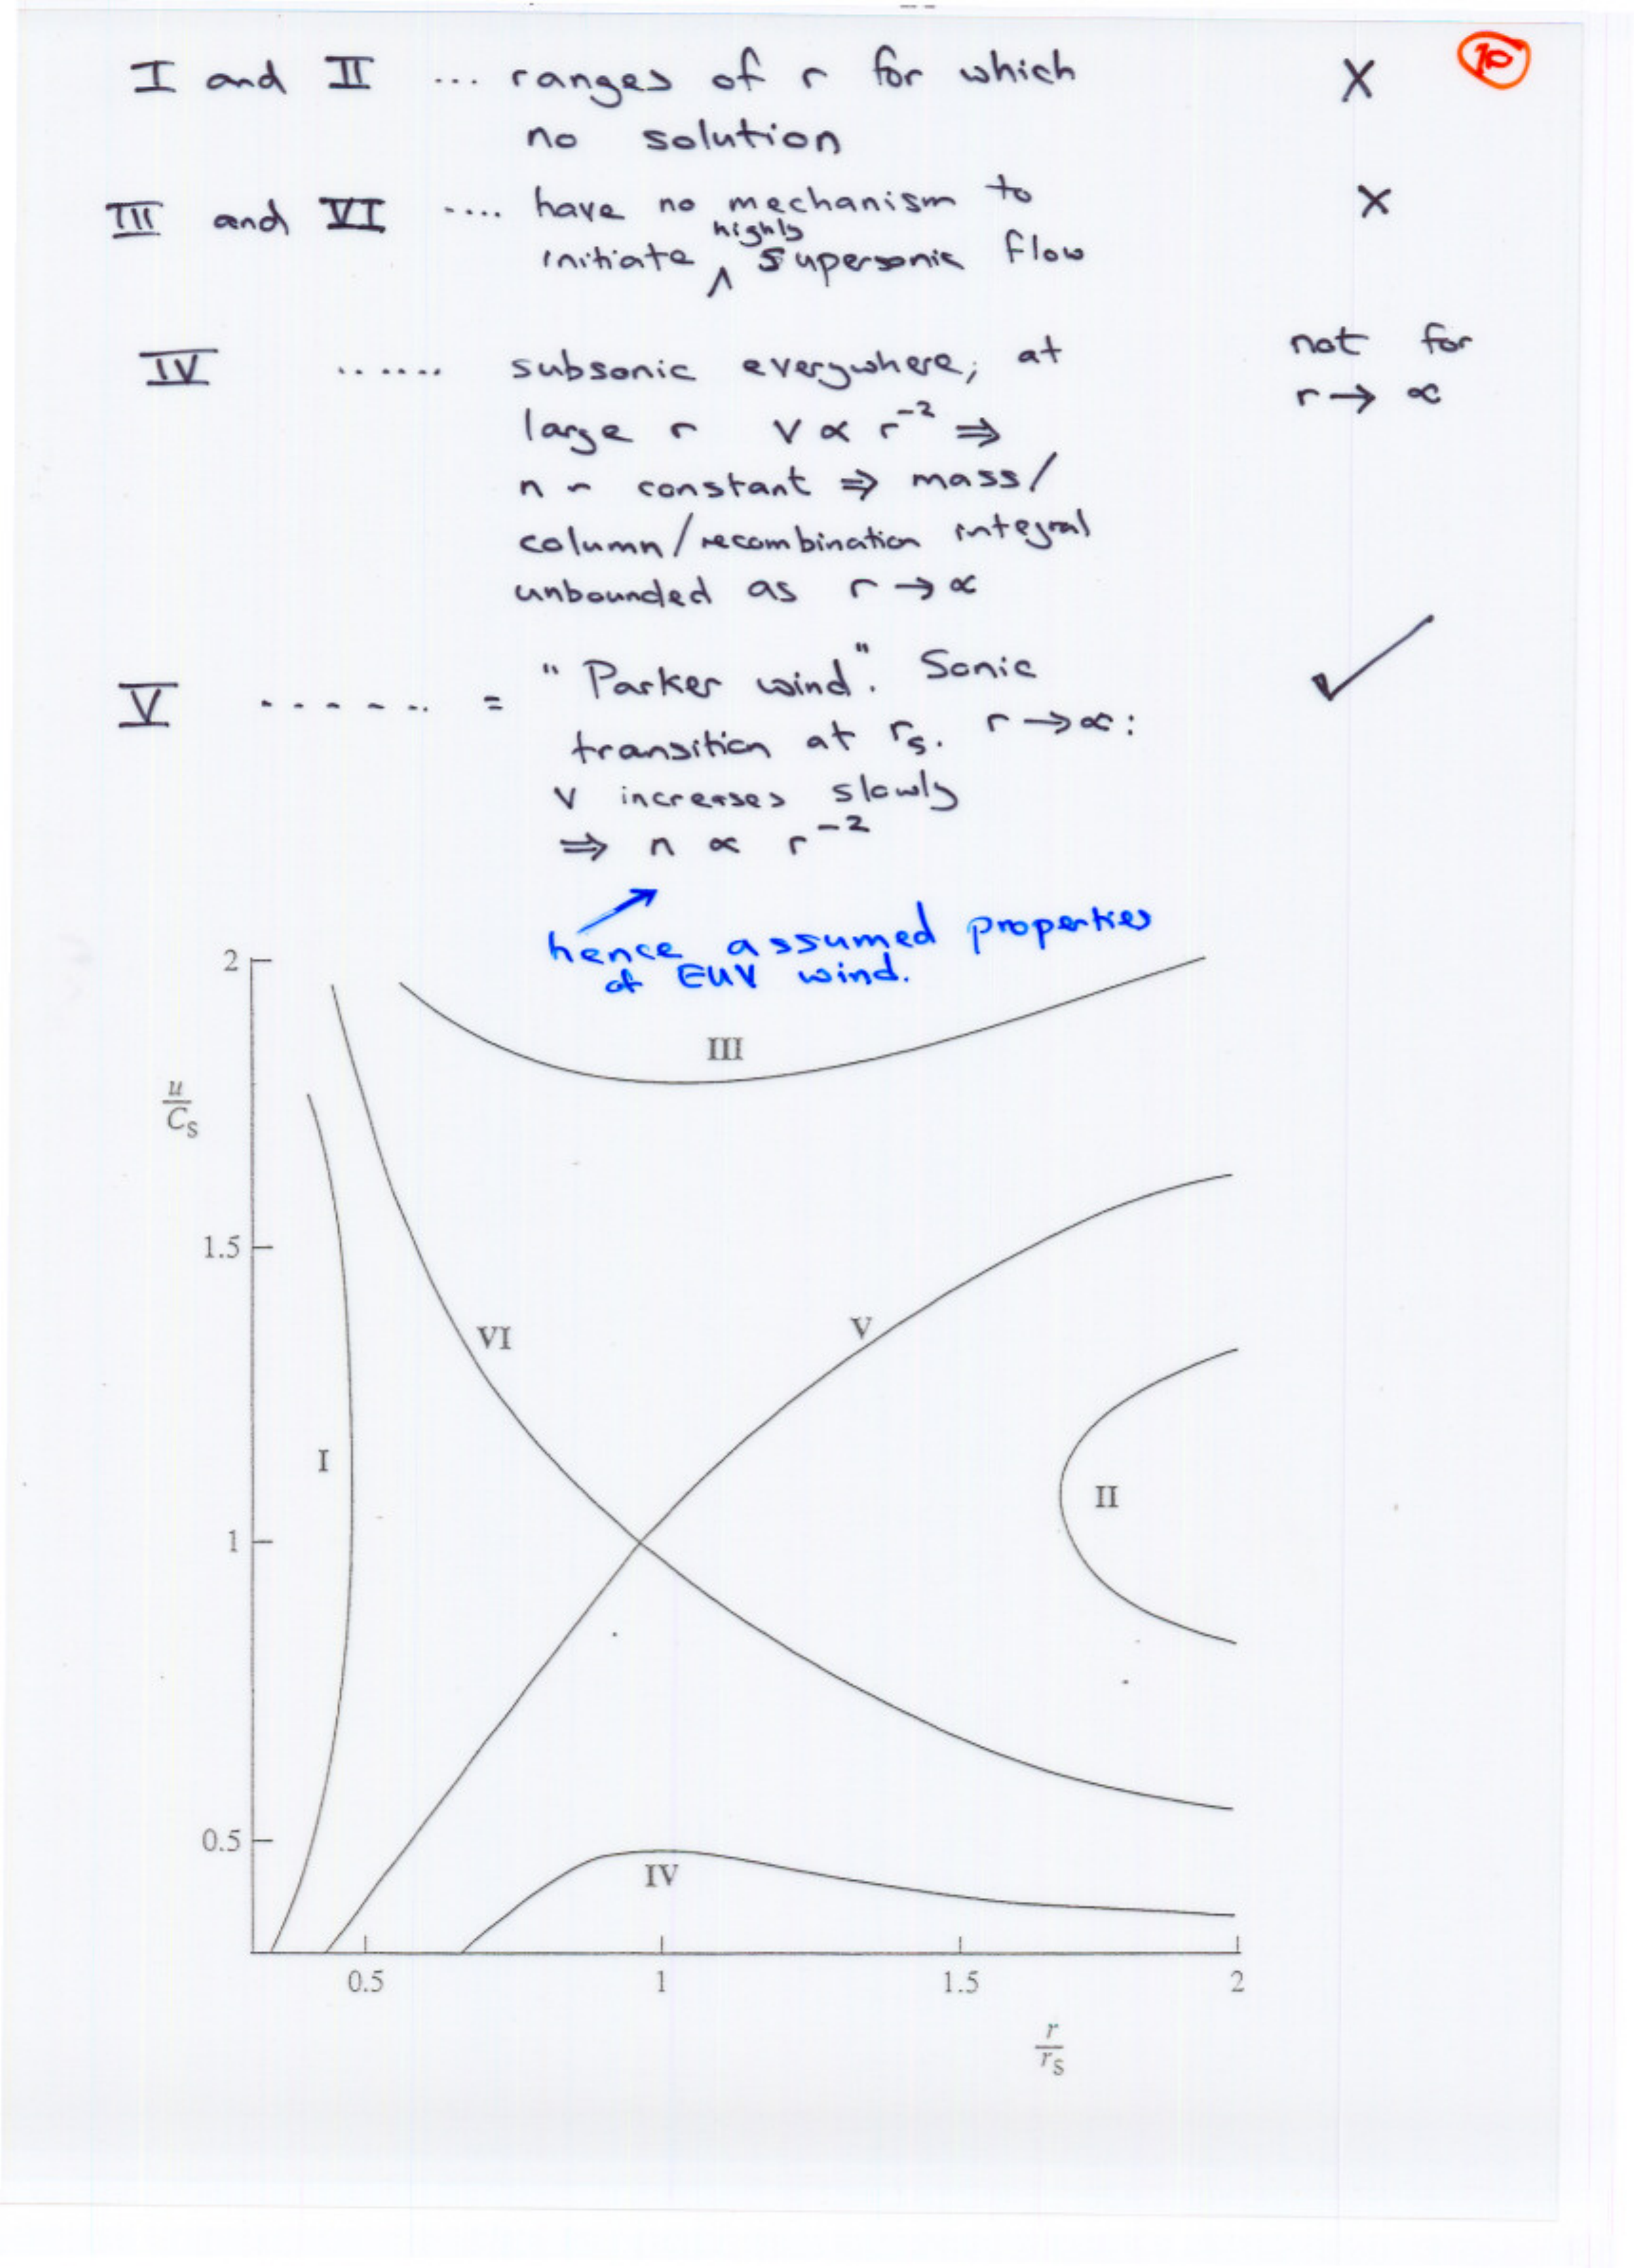 10
I and II ... ranges of r for which X
no solution
III and VI .... have no mechanism to X
highly
initiate ^ supersonic flow
IV ...... subsonic everywhere; at not for
large r v ∝ r⁻² ⇒ r → ∝
n ~ constant ⇒ mass/
column/recombination integral
unbounded as r → ∝
V ...... = "Parker wind". Sonic ✓
transition at rₛ. r → ∝:
v increases slowly
⇒ n ∝ r⁻²
hence assumed properties
of EUV wind.
2
III
u
Cₛ
1.5
VI
V
I
II
1
0.5
IV
0.5 1 1.5 2
r
rₛ